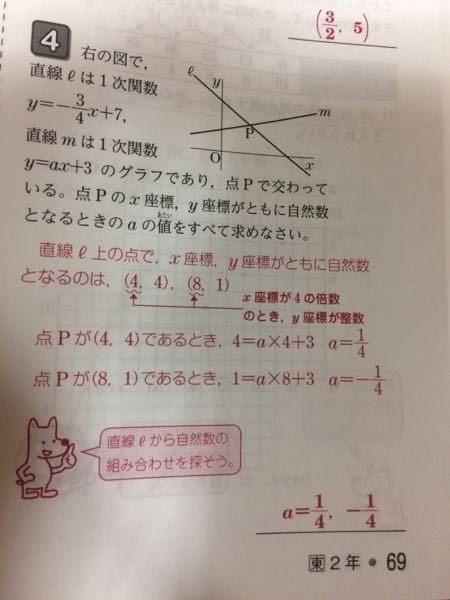 (3/2, 5)
4 右の図で，
直線ℓは1次関数
y=-3/4x+7，
直線mは1次関数
y=ax+3 のグラフであり，点Pで交わって
いる。点Pのx座標，y座標がともに自然数
となるときのaの値をすべて求めなさい。
あたい
ℓ
y
m
P
O
x
直線ℓ上の点で，x座標，y座標がともに自然数
となるのは，(4, 4)，(8, 1)
x座標が4の倍数
のとき，y座標が整数
点Pが(4, 4)であるとき，4=a×4+3 a=1/4
点Pが(8, 1)であるとき，1=a×8+3 a=-1/4
直線ℓから自然数の
組み合わせを探そう。
a=1/4, -1/4
東2年・69